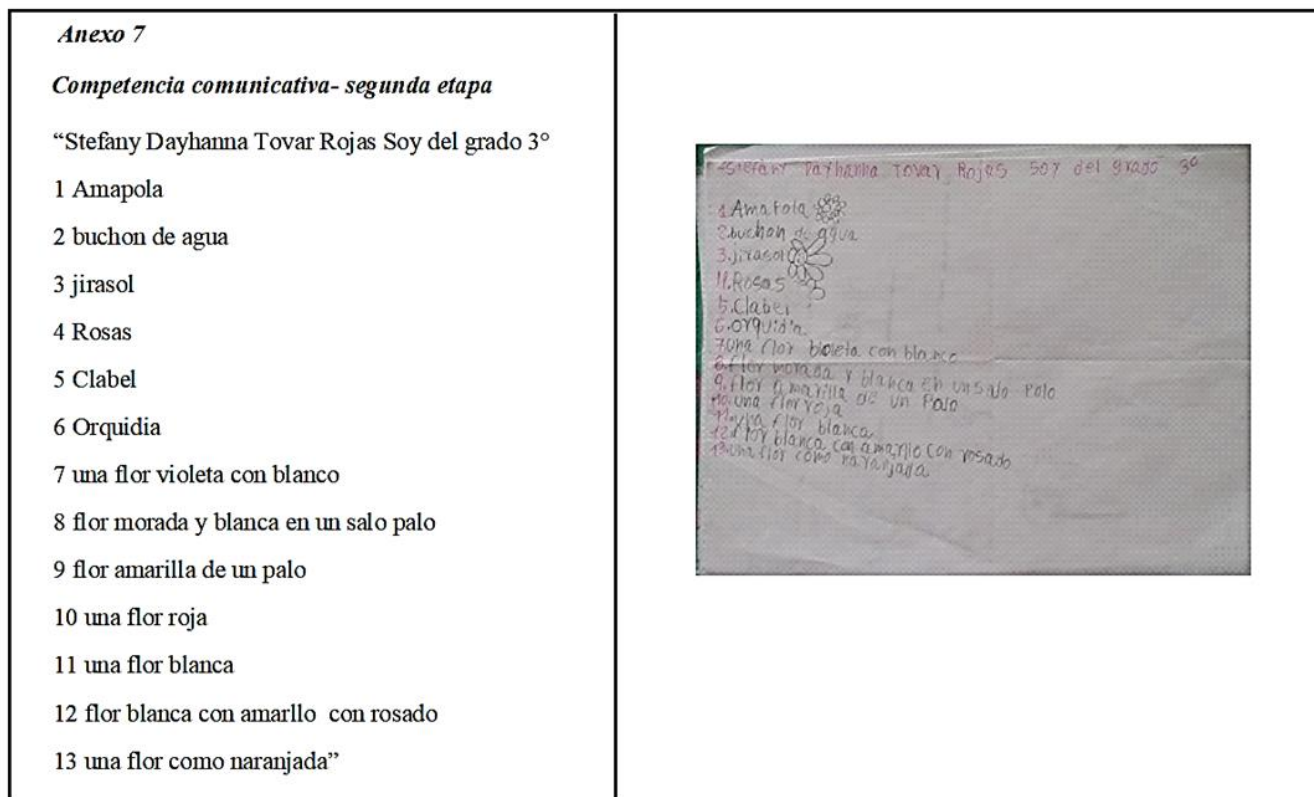 Anexo 7
Competencia comunicativa- segunda etapa
“Stefany Dayhanna Tovar Rojas Soy del grado 3°
1 Amapola
2 buchon de agua
3 jirasol
4 Rosas
5 Clabel
6 Orquidia
7 una flor violeta con blanco
8 flor morada y blanca en un salo palo
9 flor amarilla de un palo
10 una flor roja
11 una flor blanca
12 flor blanca con amarllo con rosado
13 una flor como naranjada”
Dayhanna Tovar Rojas soy del grado 3°
1. Amapola
2. buchon de agua
3. jirasol
4. Rosas
5. Clabel
6. orquidia
7 una flor bioleta con blanco
8. flor morada y blanca en un salo palo
9. flor amarilla de un palo
10. una flor roja
11. una flor blanca
12 flor blanca con amarillo con rosado
13. una flor como naranjada